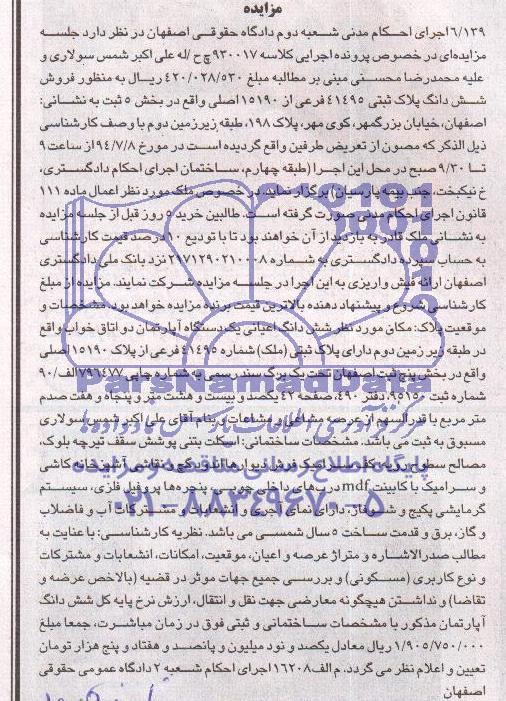 مزایده
۶/۱۳۹ اجرای احکام مدنی شعبه دوم دادگاه حقوقی اصفهان در نظر دارد جلسه
مزایده‌ای در خصوص پرونده اجرایی کلاسه ۹۳۰۰۱۷ ج ح /له علی اکبر شمس سولاری و
علیه محمدرضا محسنی مبنی بر مطالبه مبلغ ۴۲۰/۰۲۸/۵۳۰ ریال به منظور فروش
شش دانگ پلاک ثبتی ۴۱۴۹۵ فرعی از ۱۵۱۹۰ اصلی واقع در بخش ۵ ثبت به نشانی:
اصفهان، خیابان بزرگمهر، کوی مهر، پلاک ۱۹۸، طبقه زیرزمین دوم با وصف کارشناسی
ذیل الذکر که مصون از تعریض طرفین واقع گردیده است در مورخ ۹۴/۷/۸ از ساعت ۹
تا ۹/۳۰ صبح در محل این اجرا (طبقه چهارم، ساختمان اجرای احکام دادگستری،
خ نیکبخت، جنب بیمه پارسیان) برگزار نماید، در خصوص ملک مورد نظر اعمال ماده ۱۱۱
قانون اجرای احکام مدنی صورت گرفته است. طالبین خرید ۵ روز قبل از جلسه مزایده
به نشانی ملک قادر به بازدید از آن خواهند بود تا با تودیع ۱۰ درصد قیمت کارشناسی
به حساب سپرده دادگستری به شماره ۲۱۷۱۲۹۰۲۱۰۰۰۸ نزد بانک ملی دادگستری
اصفهان ارائه فیش واریزی به این اجرا در جلسه مزایده شرکت نمایند. مزایده از مبلغ
کارشناسی شروع و پیشنهاد دهنده بالاترین قیمت برنده مزایده خواهد بود. مشخصات و
موقعیت پلاک: مکان مورد نظر شش دانگ اعیانی یکدستگاه آپارتمان دو اتاق خواب واقع
در طبقه زیر زمین دوم دارای پلاک ثبتی (ملک) شماره ۴۱۴۹۵ فرعی از پلاک ۱۵۱۹۰ اصلی
واقع در بخش پنج ثبت اصفهان تحت یک برگ سند رسمی به شماره چاپی ۷۹۱۴۷۷ الف/۹۰
شماره ثبت ۹۵۱۵۰، دفتر ۴۹۰، صفحه ۴۲ یکصد و بیست و هشت متر و پنجاه و هفت صدم
متر مربع با قدرالسهم از عرصه مشاعی و مشاعات و بنام آقای علی اکبر شمس سولاری
مسبوق به ثبت می باشد. مشخصات ساختمانی: اسکلت بتنی پوشش سقف تیرچه بلوک،
مصالح سطوح رویه کف سرامیک فرش دیوارها اندود گچ و نقاشی آشپزخانه کاشی
و سرامیک با کابینت mdf درب‌های داخلی چوبی، پنجره‌ها پروفیل فلزی، سیستم
گرمایشی پکیج و شوفاژ، دارای نمای آجری و انشعابات و مشترکات آب و فاضلاب
و گاز، برق و قدمت ساخت ۵ سال شمسی می باشد. نظریه کارشناسی: با عنایت به
مطالب صدرالاشاره و متراژ عرصه و اعیان، موقعیت، امکانات، انشعابات و مشترکات
و نوع کاربری (مسکونی) و بررسی جمیع جهات موثر در قضیه (بالاخص عرضه و
تقاضا) و نداشتن هیچگونه معارضی جهت نقل و انتقال، ارزش نرخ پایه کل شش دانگ
آپارتمان مذکور با مشخصات ساختمانی و ثبتی فوق در زمان مباشرت، جمعا مبلغ
۱/۹۰۵/۷۵۰/۰۰۰ ریال معادل یکصد و نود میلیون و پانصد و هفتاد و پنج هزار تومان
تعیین و اعلام نظر می گردد. م الف ۱۶۲۰۸ اجرای احکام شعبه ۲ دادگاه عمومی حقوقی
اصفهان
ParsNamadData
پایگاه اطلاع رسانی مناقصه و مزایده
۰۲۱-۸۸۳۴۹۶۷۰-۵